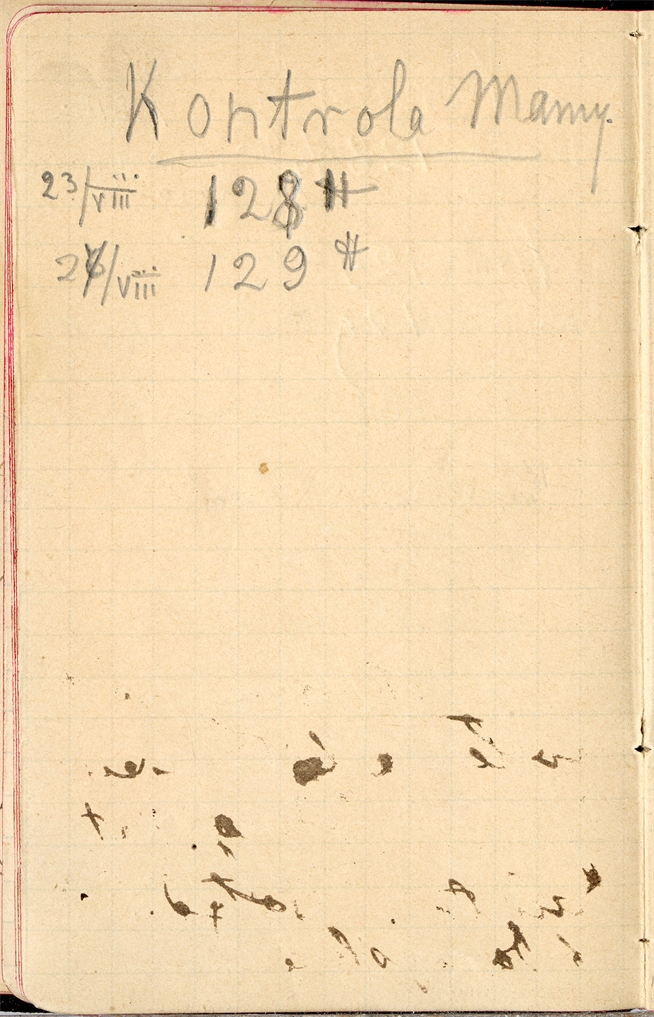 Kontrola Mamy.
23/VIII 128 #
26/VIII 129 #